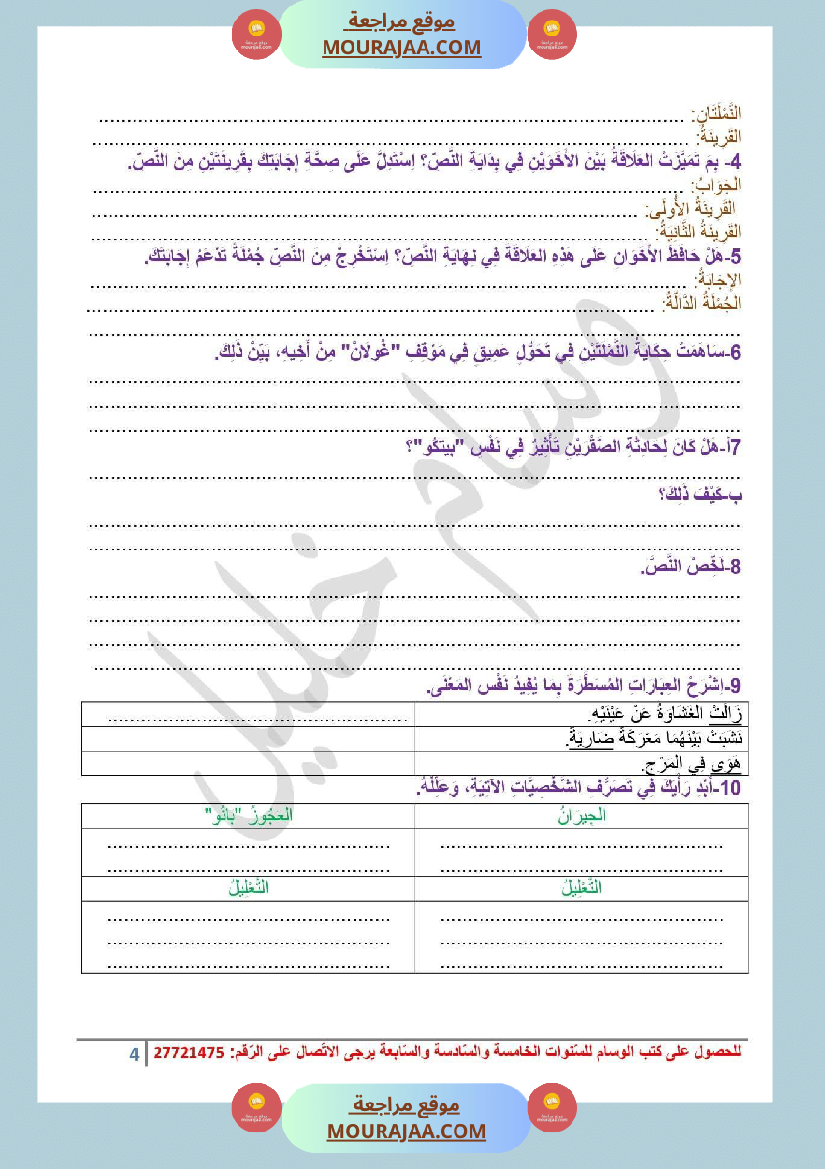 موقع مراجعة
MOURAJAA.COM
النَّمْلَتَانِ: ......................................................
القَرِينَةُ: ......................................................
4- بِمَ تَمَيَّزَتْ العَلَاقَةُ بَيْنَ الأَخَوَيْنِ فِي بِدَايَةِ النَّصِّ؟ اِسْتَدِلَّ عَلَى صِحَّةِ إِجَابَتِكَ بِقَرِينَتَيْنِ مِنَ النَّصِّ.
الجَوَابُ: ......................................................
القَرِينَةُ الأُولَى: ......................................................
القَرِينَةُ الثَّانِيَةُ: ......................................................
5-هَلْ حَافَظَ الأَخَوَانِ عَلَى هَذِهِ العَلَاقَةِ فِي نِهَايَةِ النَّصِّ؟ اِسْتَخْرِجْ مِنَ النَّصِّ جُمْلَةً تَدْعَمُ إِجَابَتَكَ.
الإِجَابَةُ: ......................................................
الجُمْلَةُ الدَّالَّةُ: ......................................................
......................................................
6-سَاهَمَتْ حِكَايَةُ النَّمْلَتَيْنِ فِي تَحَوُّلٍ عَمِيقٍ فِي مَوْقِفِ "غُولَانْ" مِنْ أَخِيهِ، بَيِّنْ ذَلِكَ.
......................................................
......................................................
......................................................
7أ-هَلْ كَانَ لِحَادِثَةِ الصَّقْرَيْنِ تَأْثِيرٌ فِي نَفْسِ "بِيتكُو"؟
......................................................
ب-كَيْفَ ذَلِكَ؟
......................................................
......................................................
8-لَخِّصْ النَّصَّ.
......................................................
......................................................
......................................................
......................................................
9-اِشْرَحْ العِبَارَاتِ المُسَطَّرَةَ بِمَا يُفِيدُ نَفْسَ المَعْنَى.
زَالَتْ الغَشَاوَةُ عَنْ عَيْنَيْهِ. ......................................................
نَشَبَتْ بَيْنَهُمَا مَعْرَكَةٌ ضَارِيَةٌ.
هَوَى فِي المَرْجِ.
10-أَبْدِ رَأْيَكَ فِي تَصَرُّفِ الشَّخْصِيَّاتِ الآتِيَةِ، وَعَلِّلْهُ.
الجِيرَانُ العَجُوزُ "بَانُو"
...................................................... ......................................................
...................................................... ......................................................
التَّعْلِيلُ التَّعْلِيلُ
...................................................... ......................................................
...................................................... ......................................................
...................................................... ......................................................
للحصول على كتب الوسام للسّنوات الخامسة والسّادسة والسّابعة يرجى الاتّصال على الرّقم: 27721475 4
موقع مراجعة
MOURAJAA.COM
وسام خليل